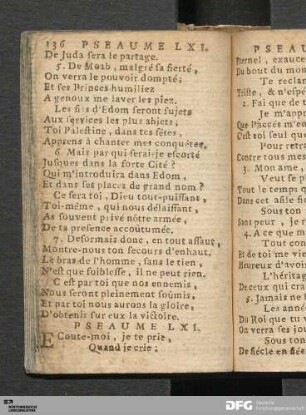 136 PSEAUME LXI.
De Juda sera le partage.
5. De Moab, malgré sa fierté,
On verra le pouvoir dompté;
Et ses Princes humiliez
A genoux me laver les piez.
Les fiers d'Edom seront
Aux services les plus abjets;
Toi Palestine, dans tes fêtes,
Apprens à chanter mes conquêtes.
6. Mais par qui serai-je escorté
Jusques dans la forte Cité?
Qui m'introduira dans Edom,
Et dans ses places de grand nom?
Ce sera toi, Dieu tout-puissant,
Toi-même, qui nous délaissant,
As souvent privé nôtre armée,
De ta presence accoûtumée.
7. Desormais donc, en tout assaut,
Montre-nous ton secours d'enhaut.
Le bras de l'homme, sans le tien,
N'est que foiblesse, il ne peut rien.
C'est par toi que nos ennemis,
Nous seront pleinement soûmis,
Et par toi nous aurons la gloire,
D'obtenir sur eux la victoire.
PSEAUME LXI.
Ecoute-moi, je te prie,
Quand je crie:
PSEAU
Eternel, exauce
Du bout du mon
Te reclam
Triste, & n'espé
2. Fai que de
Je m'appr
Que l'accés m'en
C'est toi seul que
Pour retra
Contre tous mes
3. Mon ame,
Veut se p
Tout le temps q
Dans cet asile
Sous ton
Sans peur, je r
4. A ce que m
Tout con
Et de toi me vie
Heureux d'avoi
L'herita
De ceux qui cra
5. Jamais ne
Les anné
Du Roi que tu v
On verra ses jou
Sous ton
De siécle en siécl
DFG